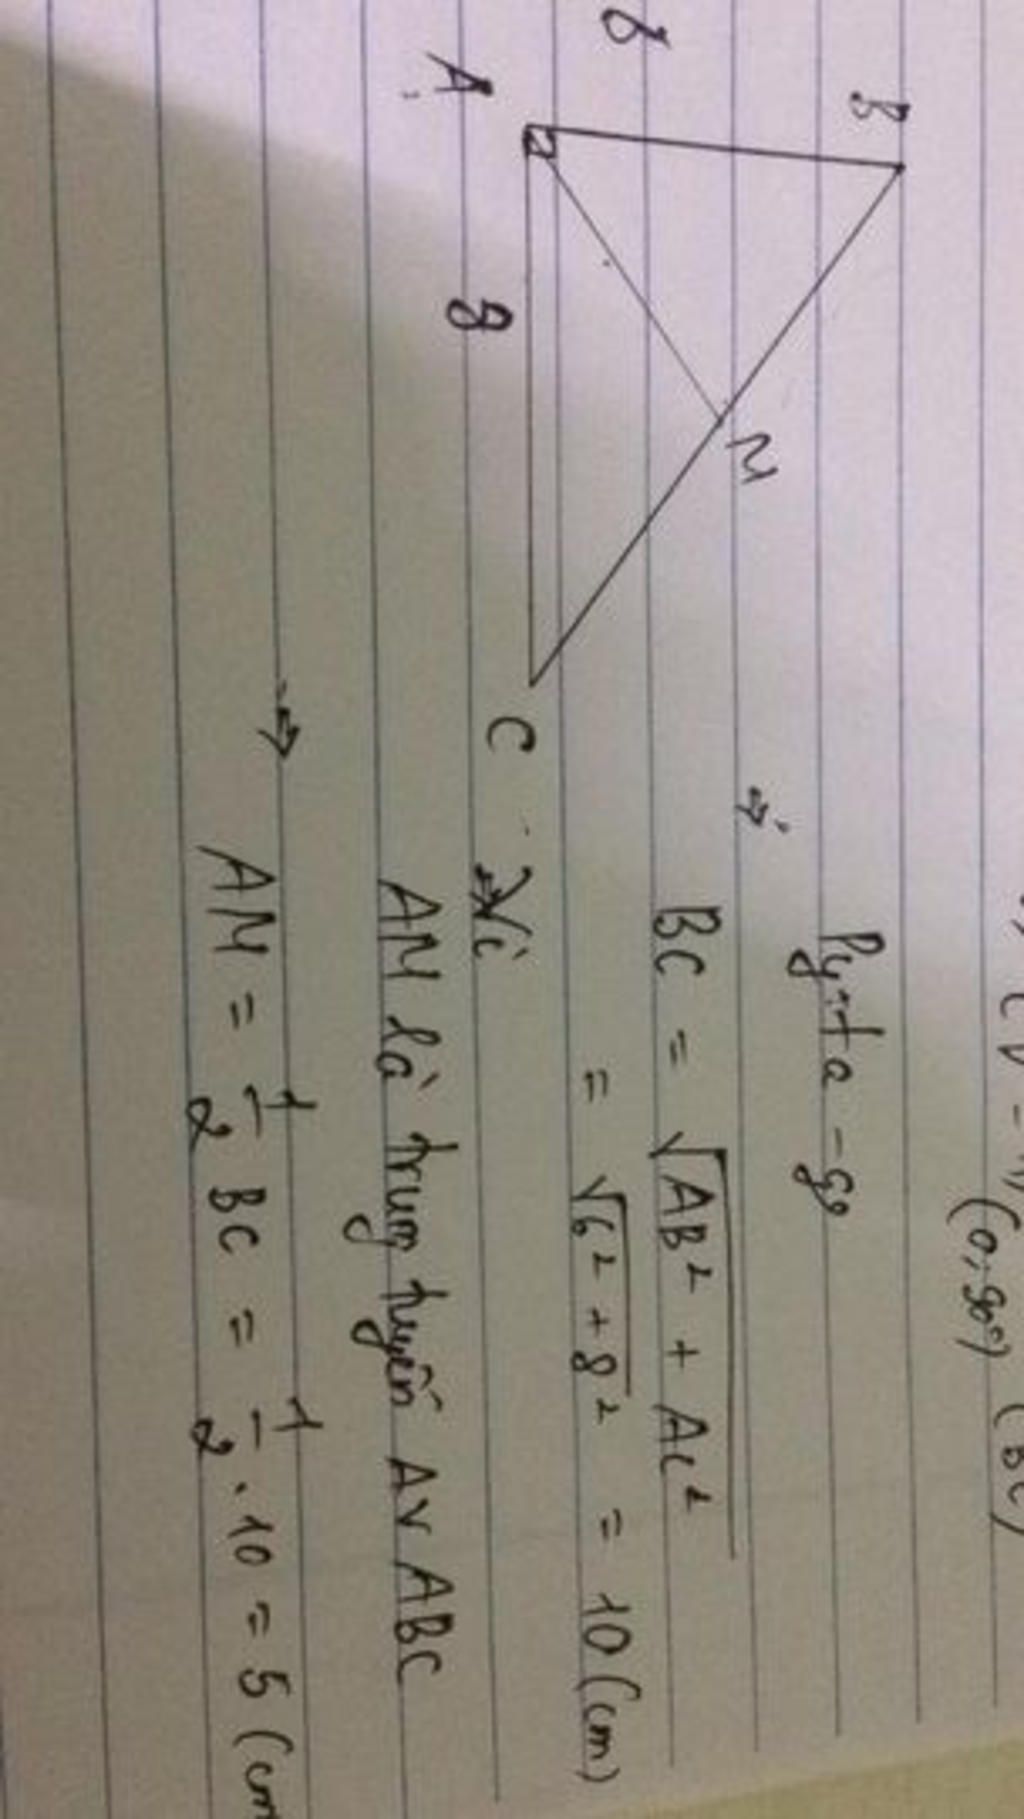 (0; 90°)
B
Py-ta-go
6
M
⇒ BC = √AB² + AC²
= √6² + 8² = 10 (cm)
A
8
C
Vì
AM là trung tuyến Δv ABC
⇒ AM = 1/2 BC = 1/2 . 10 = 5 (cm